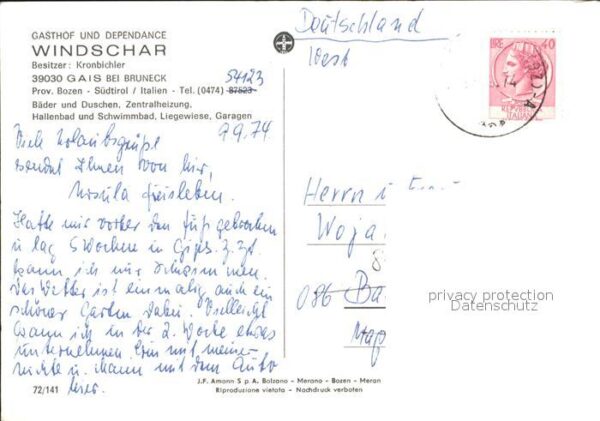 GASTHOF UND DEPENDANCE
WINDSCHAR
Besitzer: Kronbichler
39030 GAIS BEI BRUNECK
54123
Prov. Bozen - Südtirol / Italien - Tel. (0474) 87523
Bäder und Duschen, Zentralheizung,
Hallenbad und Schwimmbad, Liegewiese, Garagen
9.9.74
Viele Urlaubsgrüße
sendet Ihnen von hier,
Ursula Freisleben.
Hatte mir vorher den Fuß gebrochen
u lag 5 Wochen in Gips. Z. Zt.
kann ich nur schwimmen.
Das Wetter ist einmalig auch ein
schöner Garten dabei. Vielleicht
kann ich in der 2. Woche etwas
unternehmen. Bin mit meiner
Nichte u. Mann mit dem Auto
hier.
72/141
J.F. Amonn S p A. Bolzano - Merano - Bozen - Meran
Riproduzione vietata - Nachdruck verboten
Deutschland
West
LIRE 40
74
ITALIANA
Herrn u
Woja
086 Ba
privacy protection
Datenschutz